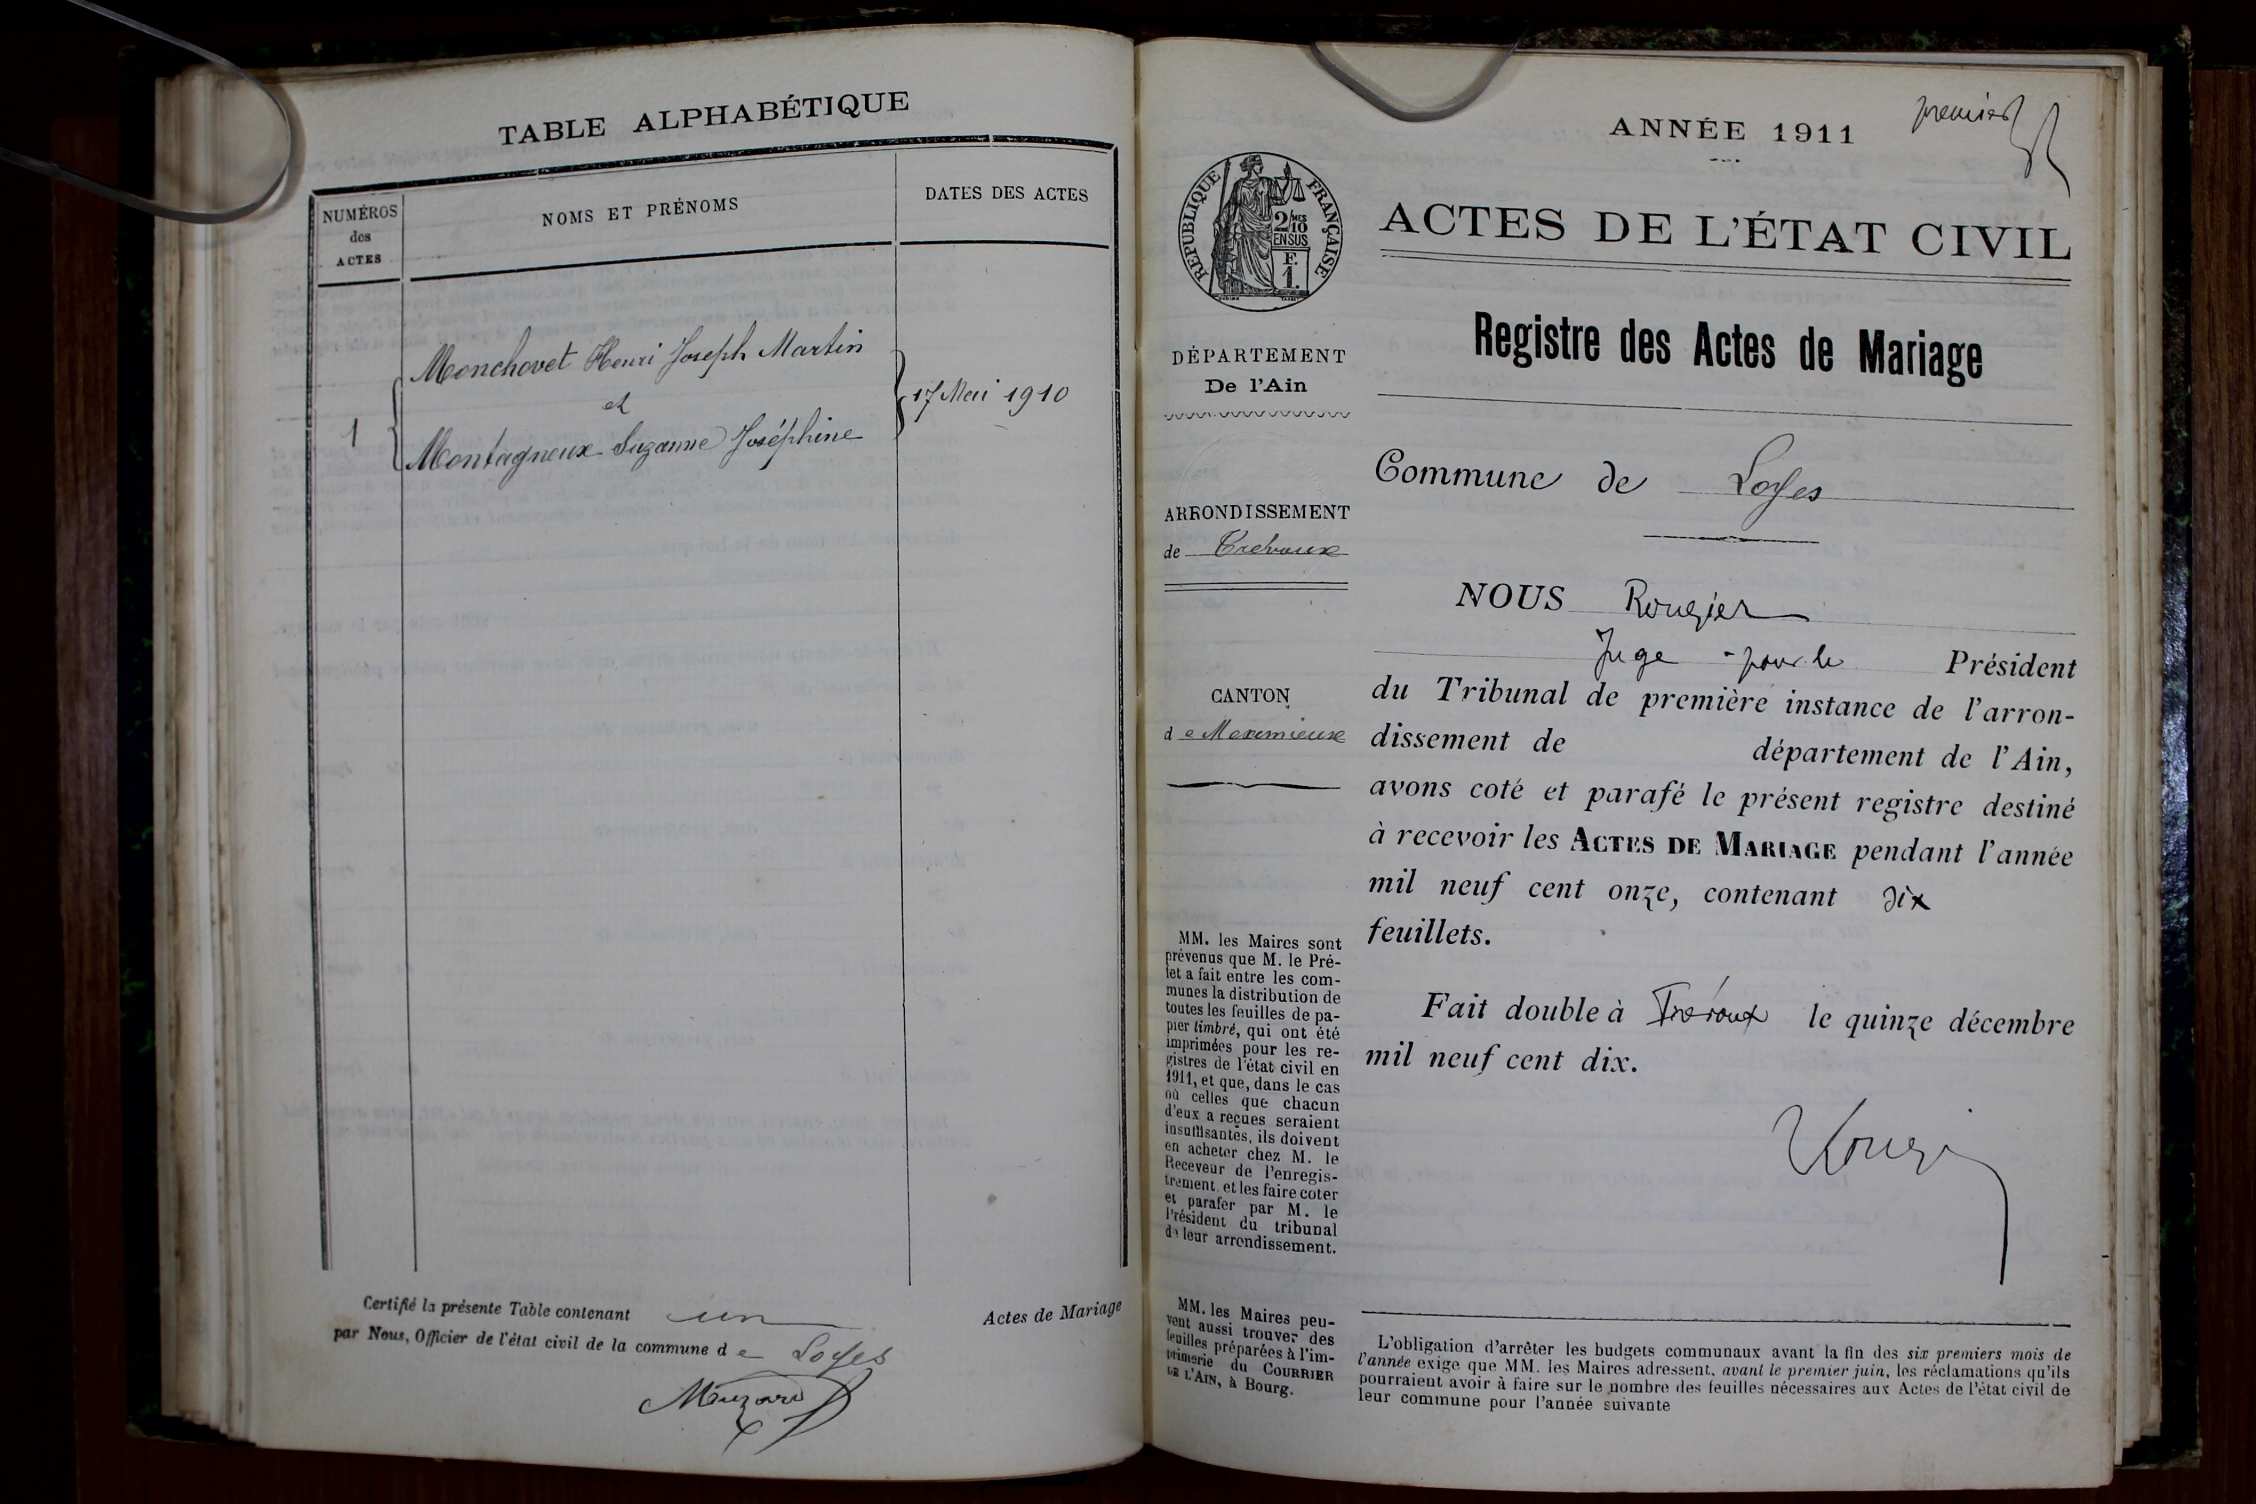 TABLE ALPHABÉTIQUE
NUMÉROS
des
ACTES
NOMS ET PRÉNOMS
DATES DES ACTES
Monchovet Henri Joseph Martin
et
1
17 Mai 1910
Montagneux Suzanne Joséphine
Certifié la présente Table contenant un Actes de Mariage
par Nous, Officier de l'état civil de la commune de Loyes
ANNÉE 1911
premier
RÉPUBLIQUE FRANÇAISE
2/10 MES
EN SUS
F.
1.
ACTES DE L'ÉTAT CIVIL
Registre des Actes de Mariage
DÉPARTEMENT
De l'Ain
ARRONDISSEMENT
de Trévoux
CANTON
de Meximieux
MM. les Maires sont
prévenus que M. le Pré-
fet a fait entre les com-
munes la distribution de
toutes les feuilles de pa-
pier timbré, qui ont été
imprimées pour les re-
gistres de l'état civil en
1911, et que, dans le cas
où celles que chacun
d'eux a reçues seraient
insuffisantes, ils doivent
en acheter chez M. le
Receveur de l'enregis-
trement, et les faire coter
et parafer par M. le
Président du tribunal
de leur arrondissement.
MM. les Maires peu-
vent aussi trouver des
feuilles préparées à l'im-
primerie du COURRIER
DE L'AIN, à Bourg.
Commune de Loyes
NOUS Rougier
Juge - pour le Président
du Tribunal de première instance de l'arron-
dissement de département de l'Ain,
avons coté et parafé le présent registre destiné
à recevoir les ACTES DE MARIAGE pendant l'année
mil neuf cent onze, contenant dix
feuillets.
Fait double à Trévoux le quinze décembre
mil neuf cent dix.
L'obligation d'arrêter les budgets communaux avant la fin des six premiers mois de
l'année exige que MM. les Maires adressent, avant le premier juin, les réclamations qu'ils
pourraient avoir à faire sur le nombre des feuilles nécessaires aux Actes de l'état civil de
leur commune pour l'année suivante